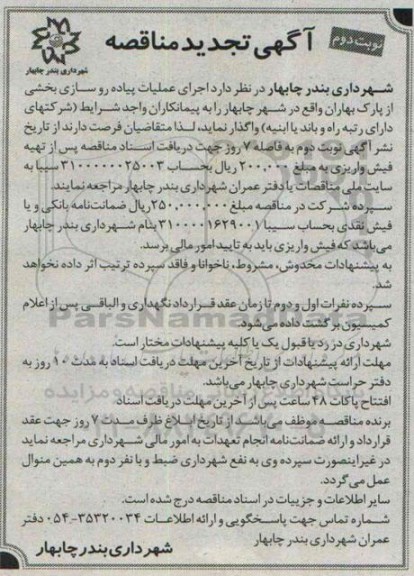 نوبت دوم
آگهی تجدید مناقصه
شهرداری بندر چابهار
شهرداری بندر چابهار در نظر دارد اجرای عملیات پیاده رو سازی بخشی
از پارک بهاران واقع در شهر چابهار را به پیمانکاران واجد شرایط (شرکتهای
دارای رتبه راه و باند یا ابنیه) واگذار نماید، لذا متقاضیان فرصت دارند از تاریخ
نشر آگهی نوبت دوم به فاصله ۷ روز جهت دریافت اسناد مناقصه پس از تهیه
فیش واریزی به مبلغ ۲۰۰,۰۰۰ ریال بحساب ۳۱۰۰۰۰۰۰۲۵۰۰۳ سیبا به
سایت ملی مناقصات یا دفتر عمران شهرداری بندر چابهار مراجعه نمایند.
سپرده شرکت در مناقصه مبلغ ۲۵۰,۰۰۰,۰۰۰ ریال ضمانت نامه بانکی و یا
فیش نقدی بحساب سیبا ۳۱۰۰۰۰۱۶۲۹۰۰۱ بنام شهرداری بندر چابهار
می باشد که فیش واریزی باید به تایید امور مالی برسد.
به پیشنهادات مخدوش، مشروط، ناخوانا و فاقد سپرده ترتیب اثر داده نخواهد
شد.
سپرده نفرات اول و دوم تا زمان عقد قرارداد نگهداری و الباقی پس از اعلام
کمیسیون برگشت داده می شود.
شهرداری در رد یا قبول یک یا کلیه پیشنهادات مختار است.
مهلت ارائه پیشنهادات از تاریخ آخرین مهلت دریافت اسناد به مدت ۱۰ روز به
دفتر حراست شهرداری چابهار می باشد.
افتتاح پاکات ۴۸ ساعت پس از آخرین مهلت دریافت اسناد
برنده مناقصه موظف می باشد از تاریخ ابلاغ ظرف مدت ۷ روز جهت عقد
قرارداد و ارائه ضمانت نامه انجام تعهدات به امور مالی شهرداری مراجعه نماید
در غیر اینصورت سپرده وی به نفع شهرداری ضبط و با نفر دوم به همین منوال
عمل می گردد.
سایر اطلاعات و جزییات در اسناد مناقصه درج شده است.
شماره تماس جهت پاسخگویی و ارائه اطلاعات ۳۵۳۲۰۰۳۴-۰۵۴ دفتر
عمران شهرداری بندر چابهار
شهرداری بندر چابهار
ParsNamadData